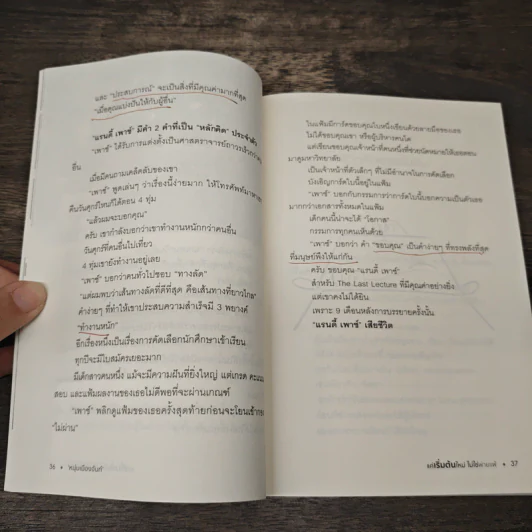 และ "ประสบการณ์" จะเป็นสิ่งที่มีคุณค่ามากที่สุด
"เมื่อคุณแบ่งปันให้กับผู้อื่น"
"แรนดี้ เพาซ์ มีคำ 2 คำที่เป็น "หลักคิด" ประจำตัว
"เพาซ์" ได้รับการแต่งตั้งเป็นศาสตราจารย์ถาวรเร็วกว่า
อื่น
เมื่อมีคนถามเคล็ดลับของเขา
"เพาซ์" พูดเล่นๆ ว่าเรื่องนี้ง่ายมาก ให้โทรศัพท์มาหา
คืนวันศุกร์ไหนก็ได้ตอน 4 ทุ่ม
"แล้วผมจะบอกคุณ"
ครับ เขากำลังบอกว่าเขาทำงานหนักกว่าคนอื่น
วันศุกร์ที่คนอื่นไปเที่ยว
4 ทุ่มเขายังทำงานอยู่เลย
"เพาซ์" บอกว่าคนทั่วไปชอบ "ทางลัด"
"แต่ผมพบว่าเส้นทางลัดที่ดีที่สุด คือเส้นทางที่ยาวไกล"
คำง่ายๆ ที่ทำให้เขาประสบความสำเร็จมี 3 พยางค์
"ทำงานหนัก"
อีกเรื่องหนึ่งเป็นเรื่องการคัดเลือกนักศึกษาเข้าเรียน
ทุกปีจะมีใบสมัครเยอะมาก
มีเด็กสาวคนหนึ่ง แม้จะมีความฝันที่ยิ่งใหญ่ แต่เกรด คะแนน
สอบ และแฟ้มผลงานของเธอไม่ดีพอที่จะผ่านเกณฑ์
"เพาซ์" พลิกดูแฟ้มของเธอครั้งสุดท้ายก่อนจะโยนเข้า
"ไม่ผ่าน"
36 • หนุ่มเมืองจันท์
ในแฟ้มมีการ์ดขอบคุณใบหนึ่งเขียนด้วยลายมือของเธอ
ไม่ได้ขอบคุณเขา หรือผู้บริหารคนใด
แต่เขียนขอบคุณเจ้าหน้าที่คนหนึ่งที่ช่วยนัดหมายให้เธอตอน
มาดูมหาวิทยาลัย
เป็นเจ้าหน้าที่ตัวเล็กๆ ที่ไม่มีอำนาจในการคัดเลือก
บังเอิญการ์ดใบนี้อยู่ในแฟ้ม
"เพาซ์" บอกกับกรรมการว่าการ์ดใบนี้บอกความเป็นตัวเธอ
มากกว่าเอกสารทั้งหมดในแฟ้ม
เด็กคนนี้น่าจะได้ "โอกาส"
กรรมการทุกคนเห็นด้วย
"เพาซ์" บอกว่า คำ "ขอบคุณ" เป็นคำง่ายๆ ที่ทรงพลังที่สุด
ที่มนุษย์พึงให้แก่กัน
ครับ ขอบคุณ "แรนดี้ เพาซ์"
สำหรับ The Last Lecture ที่มีคุณค่าอย่างยิ่ง
แต่เขาคงไม่ได้ยิน
เพราะ 9 เดือนหลังการบรรยายครั้งนั้น
"แรนดี้ เพาซ์" เสียชีวิต
แค่เริ่มต้นใหม่ ไม่ใช่ • 37